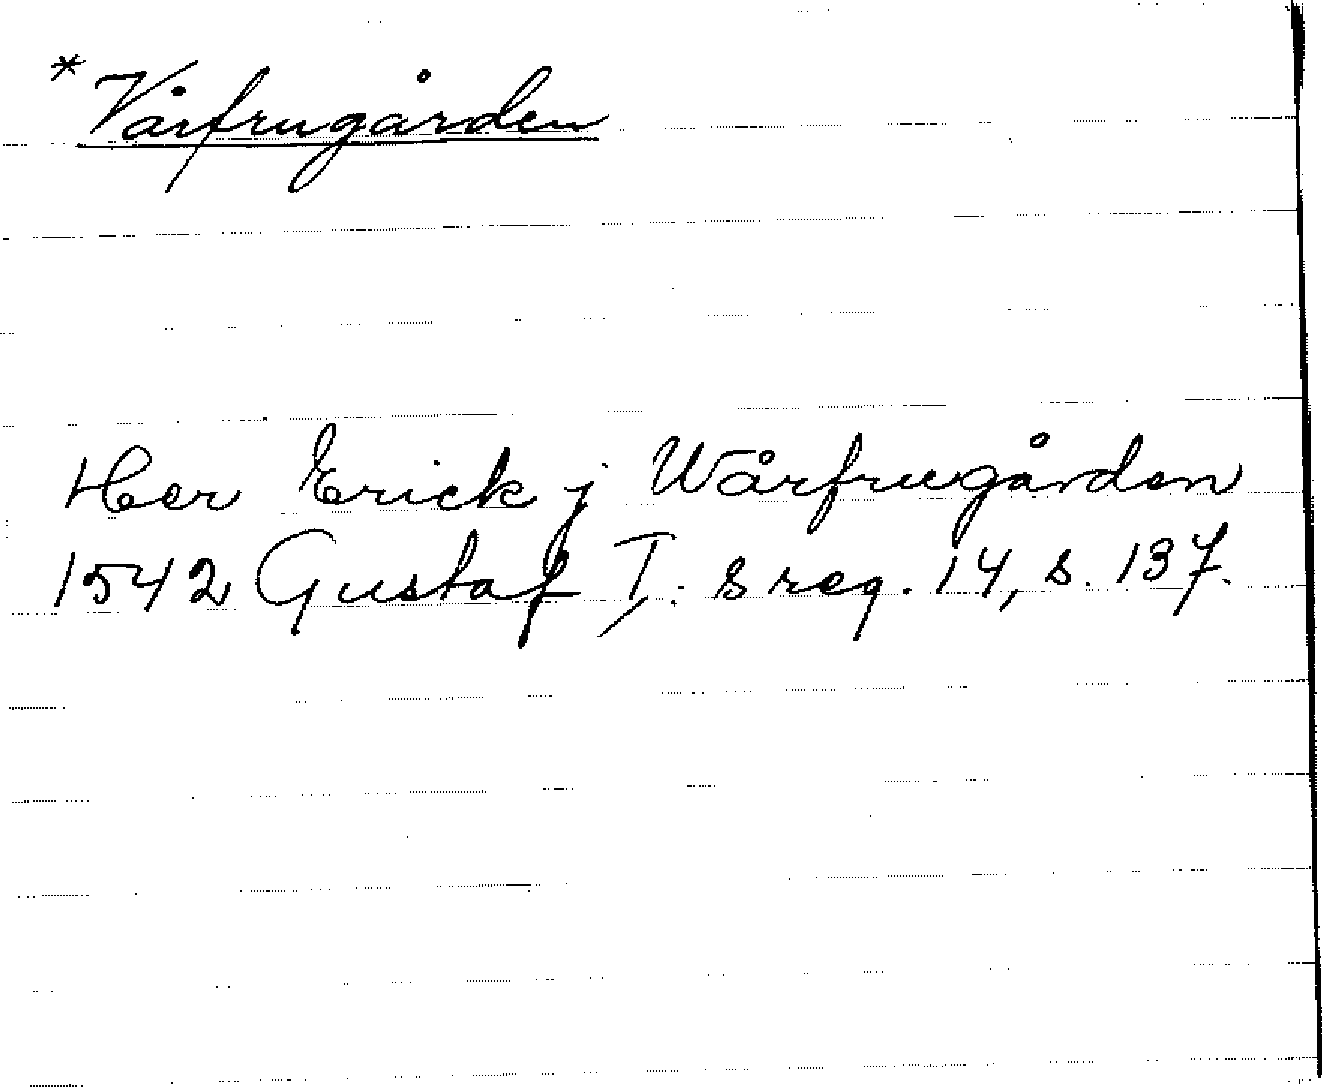 * Vårfrugården
Her Erick j Wårfrugården
1542 Gustaf I:s reg. 14, s. 137.